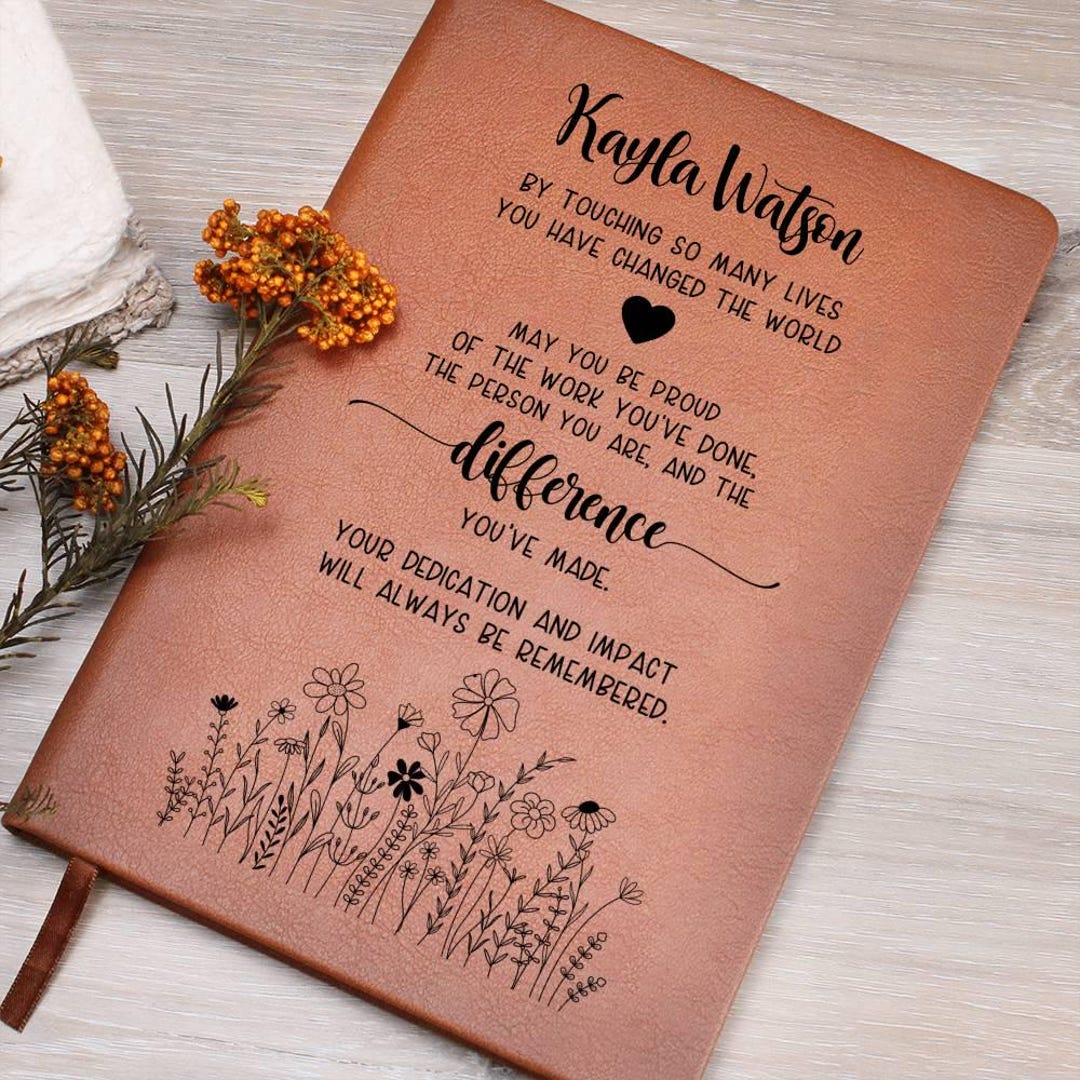 Kayla Watson
BY TOUCHING SO MANY LIVES
YOU HAVE CHANGED THE WORLD
MAY YOU BE PROUD
OF THE WORK YOU'VE DONE,
THE PERSON YOU ARE, AND THE
difference
YOU'VE MADE.
YOUR DEDICATION AND IMPACT
WILL ALWAYS BE REMEMBERED.